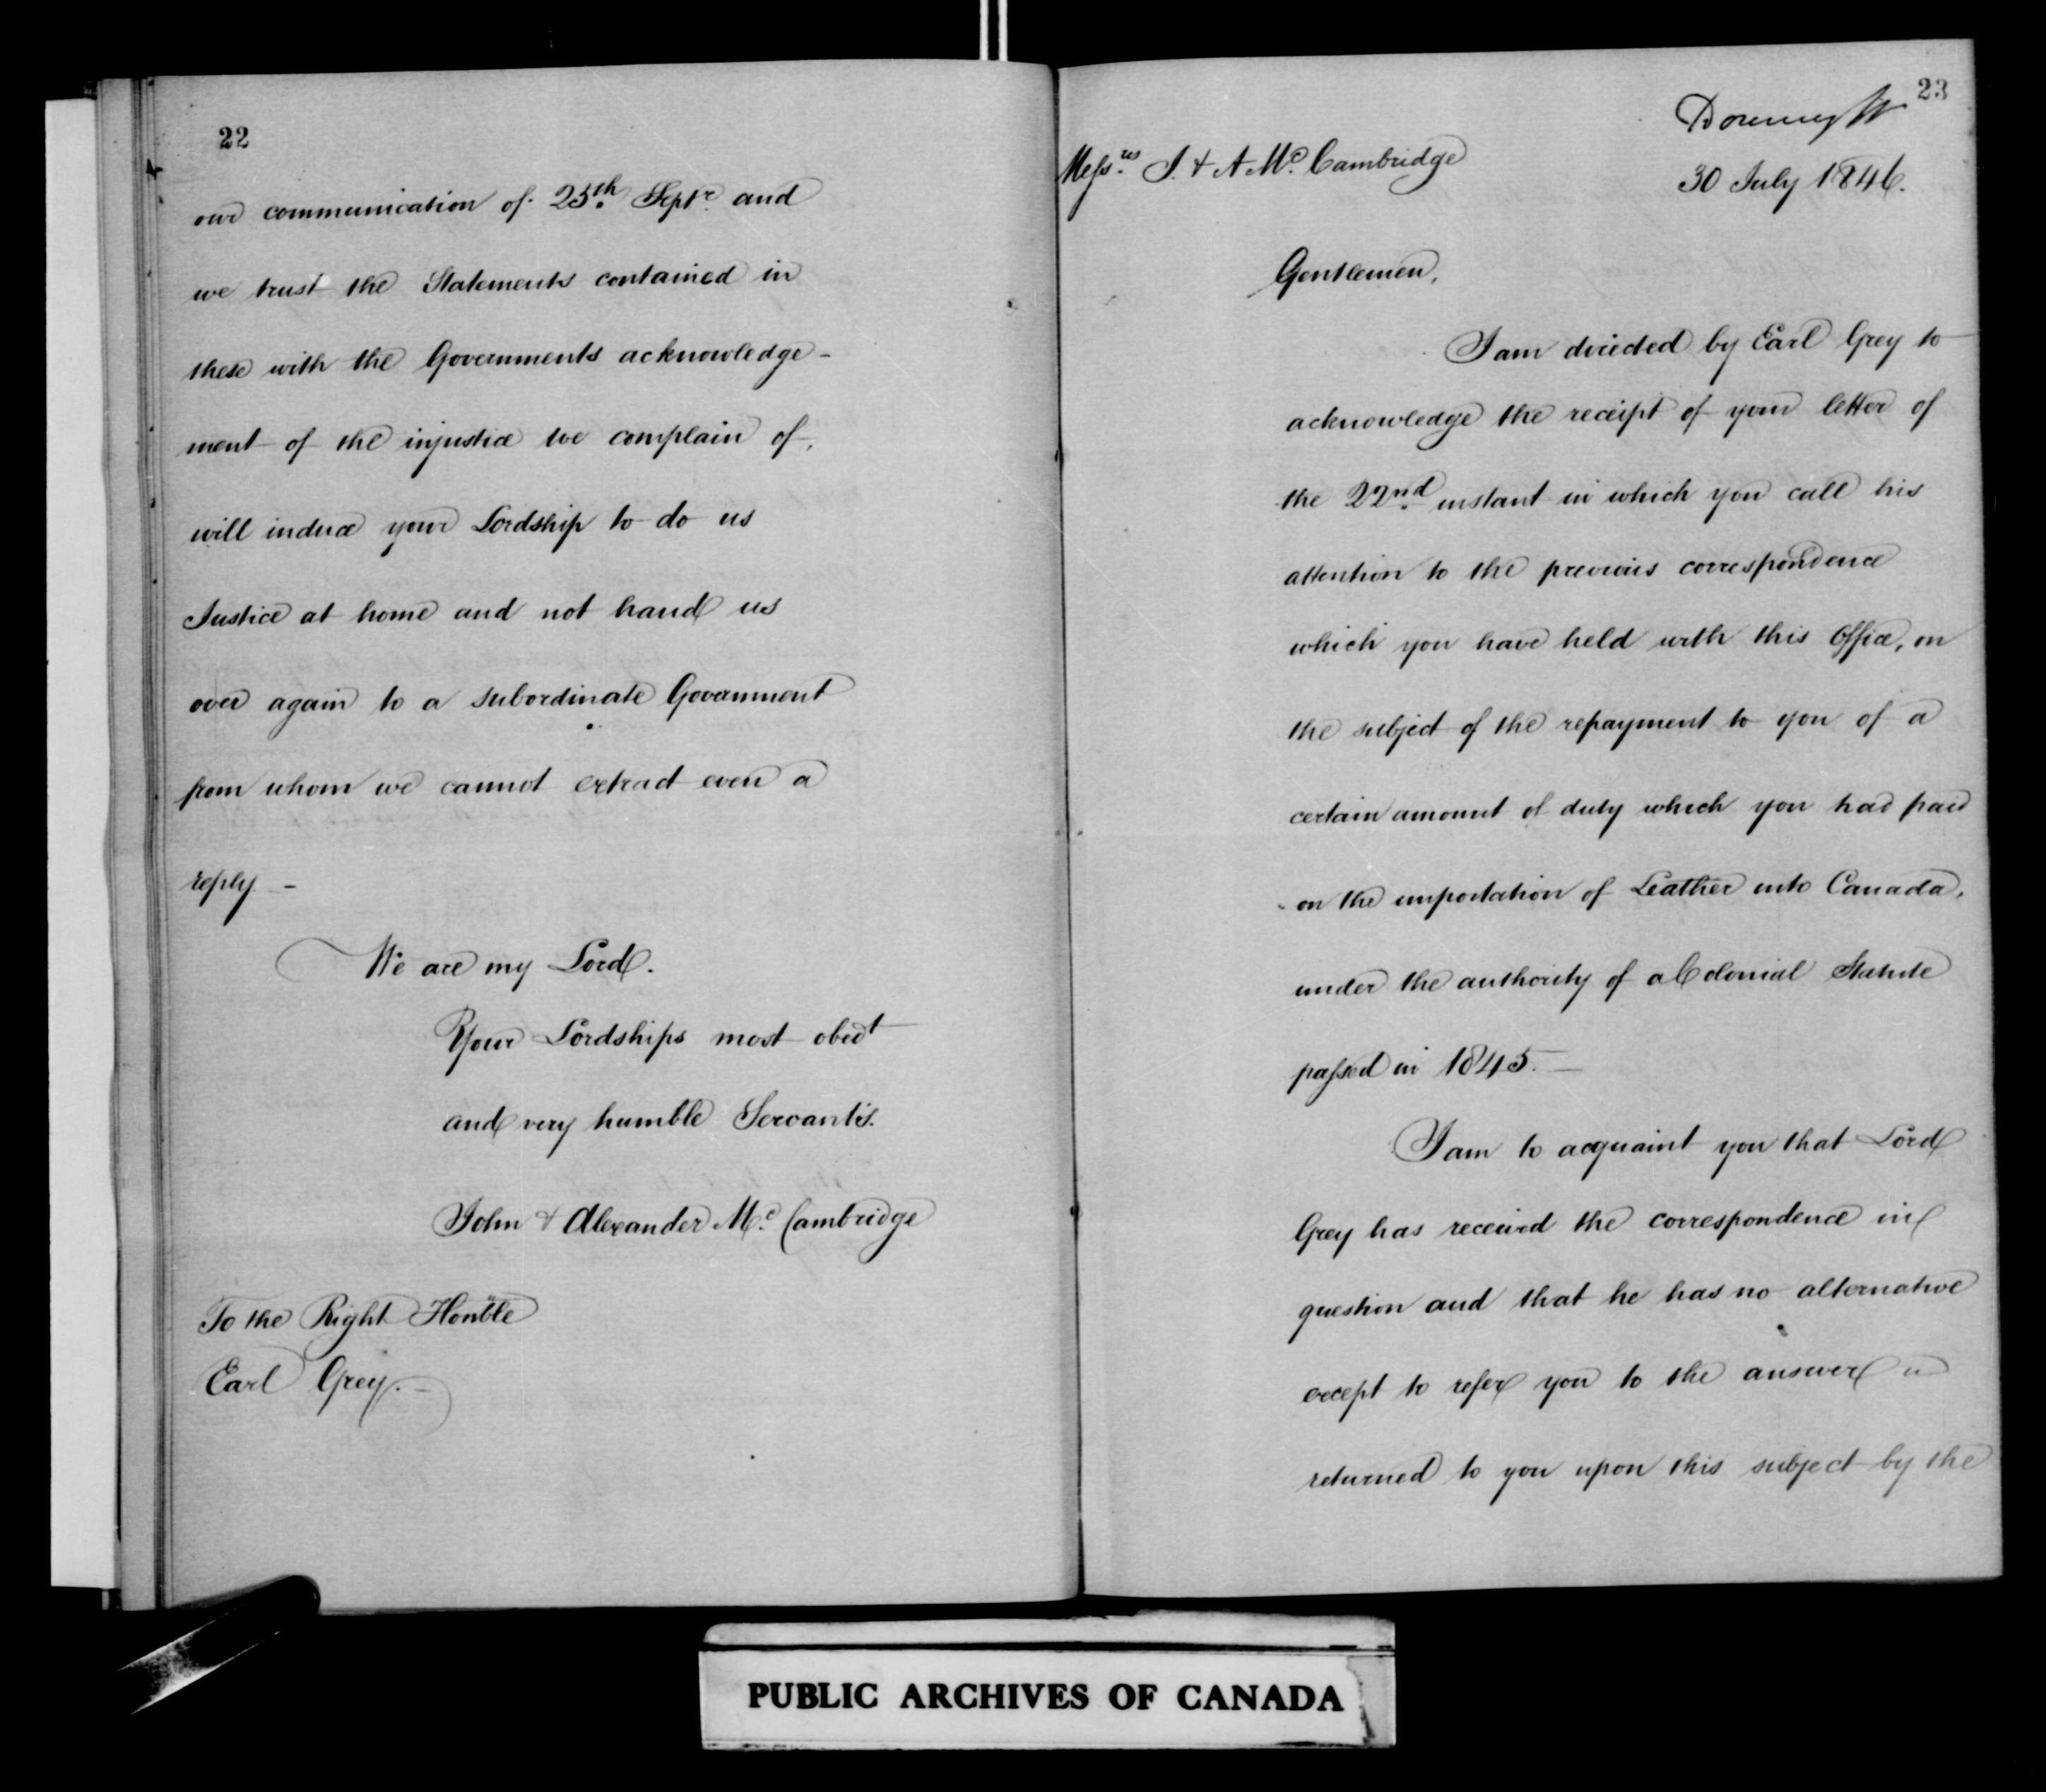 22
our communication of 25th. Septr. and
we trust the Statements contained in
these with the Governments acknowledge-
ment of the injustice we complain of,
will induce your Lordship to do us
Justice at home and not hand us
over again to a subordinate Government
from whom we cannot extract even a
reply. -
We are my Lord.
Your Lordships most obedt
and very humble Servants.
John & Alexander Mc. Cambridge
To the Right Honble
Earl Grey. -
23
Downing St
Messrs. J. & A. Mc. Cambridge
30 July 1846.
Gentlemen,
I am directed by Earl Grey to
acknowledge the receipt of your letter of
the 22nd. instant in which you call his
attention to the previous correspondence
which you have held with this Office, on
the subject of the repayment to you of a
certain amount of duty which you had paid
on the importation of Leather into Canada,
under the authority of a Colonial Statute
passed in 1845. -
I am to acquaint you that Lord
Grey has received the correspondence in
question and that he has no alternative
except to refer you to the answer
returned to you upon this subject by the
PUBLIC ARCHIVES OF CANADA